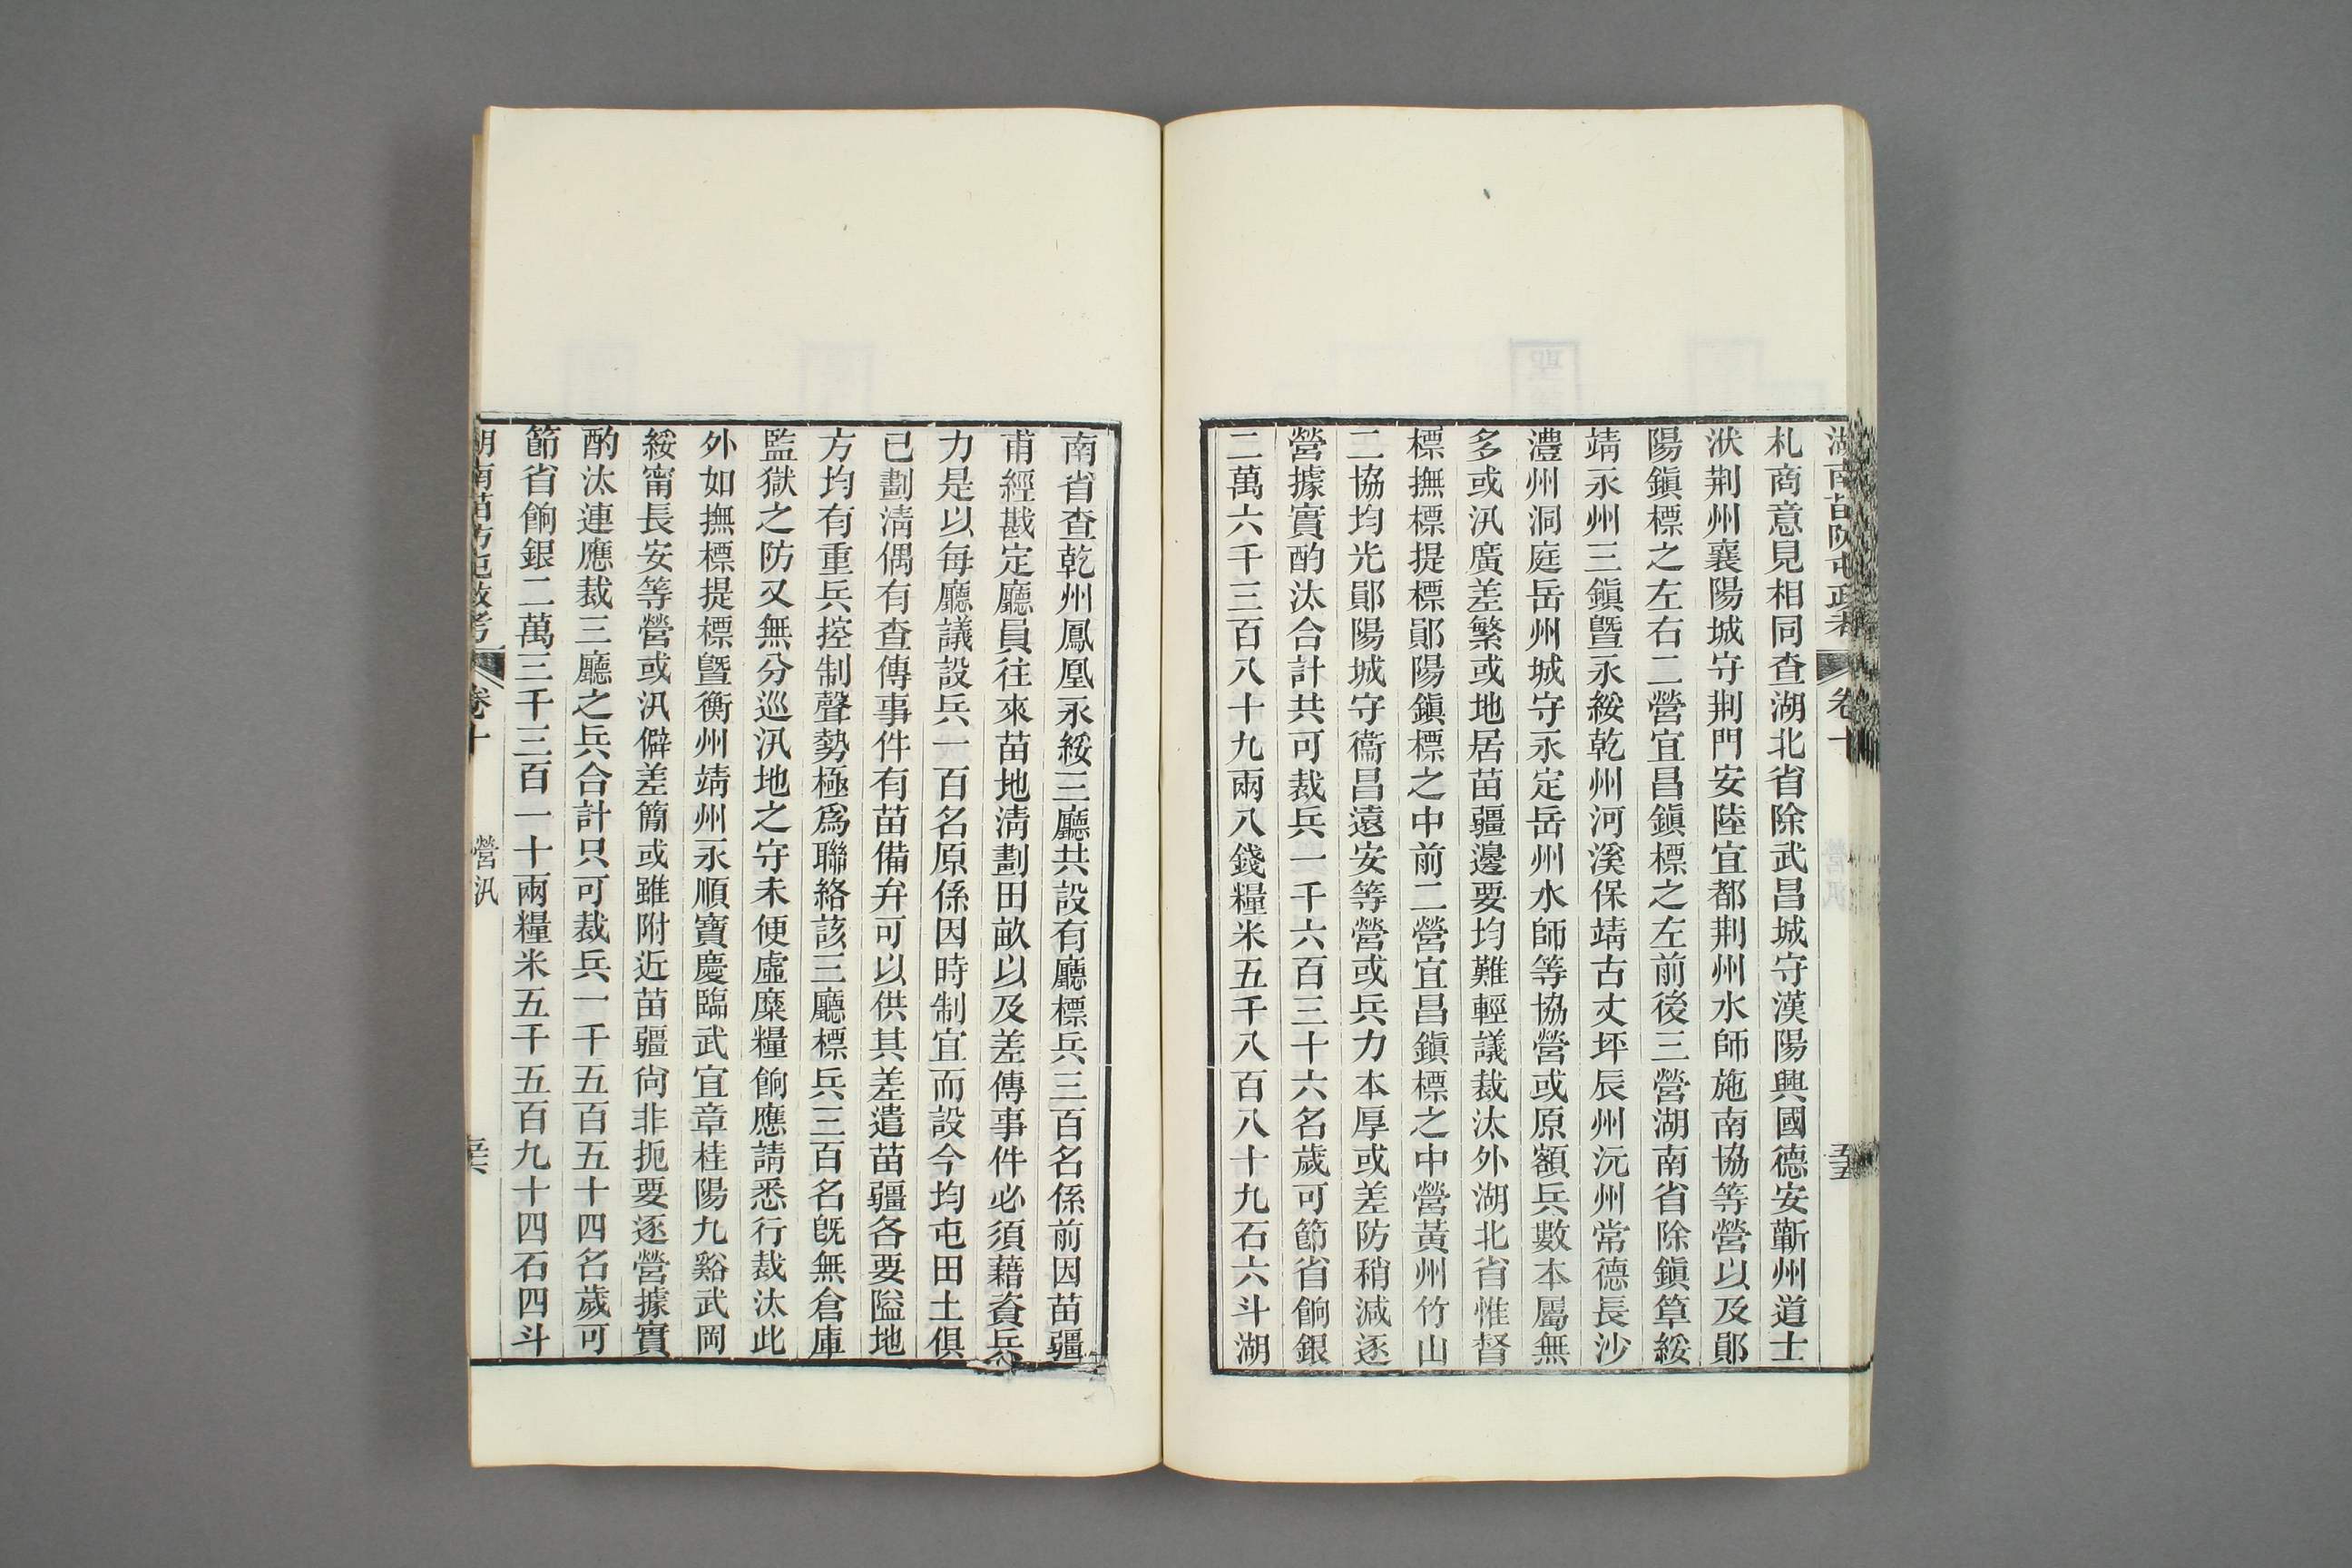 湖南苗防屯政考 卷十 五五
札商意見相同查湖北省除武昌城守漢陽興國德安蘄州道士
洑荆州襄陽城守荆門安陸宜都荆州水師施南協等營以及鄖
陽鎭標之左右二營宜昌鎭標之左前後三營湖南省除鎭筸綏
靖永州三鎭曁永綏乾州河溪保靖古丈坪辰州沅州常德長沙
澧州洞庭岳州城守永定岳州水師等協營或原額兵數本屬無
多或汛廣差繁或地居苗疆邊要均難輕議裁汰外湖北省惟督
標撫標提標鄖陽鎭標之中前二營宜昌鎭標之中營黃州竹山
二協均光鄖陽城守衞昌遠安等營或兵力本厚或差防稍減逐
營據實酌汰合計共可裁兵一千六百三十六名歲可節省餉銀
二萬六千三百八十九兩八錢糧米五千八百八十九石六斗湖
南省查乾州鳳凰永綏三廳共設有廳標兵三百名係前因苗疆
甫經戡定廳員往來苗地淸劃田畝以及差傳事件必須藉資兵
力是以每廳議設兵一百名原係因時制宜而設今均屯田土俱
已劃淸偶有查傳事件有苗備弁可以供其差遣苗疆各要隘地
方均有重兵控制聲勢極爲聯絡該三廳標兵三百名旣無倉庫
監獄之防又無分巡汛地之守未便虛糜糧餉應請悉行裁汰此
外如撫標提標曁衡州靖州永順寶慶臨武宜章桂陽九谿武岡
綏甯長安等營或汛僻差簡或雖附近苗疆尙非扼要逐營據實
酌汰連應裁三廳之兵合計只可裁兵一千五百五十四名歲可
節省餉銀二萬三千三百一十兩糧米五千五百九十四石四斗
湖南苗防屯政考 卷十 營汛 五六